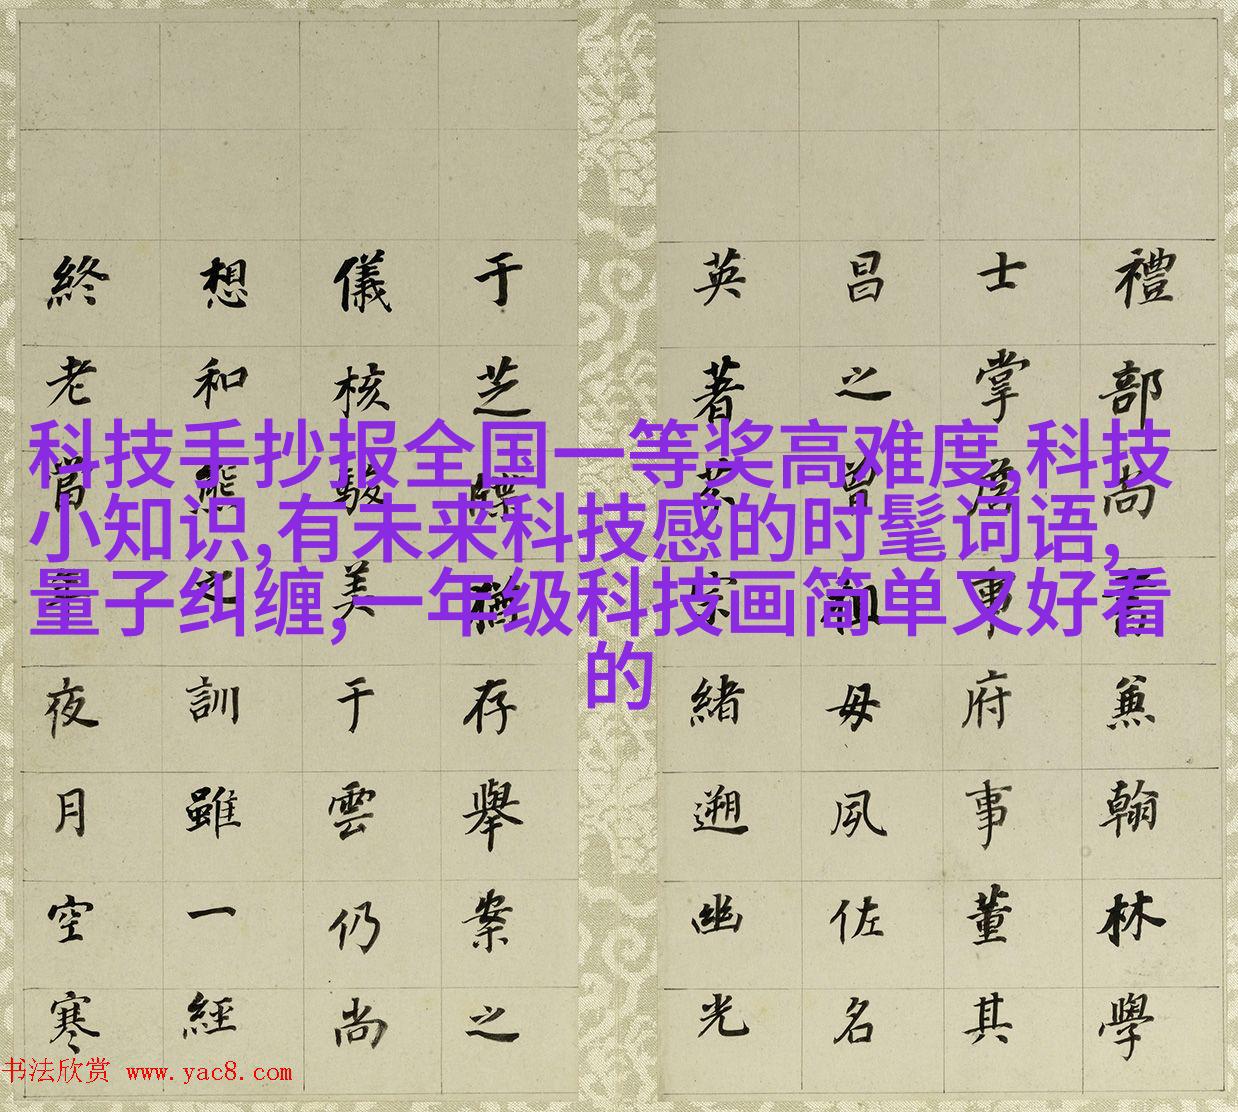 科技手抄报全国一等奖高难度,科技
小知识,有未来科技感的时髦词语,
量子纠缠,一年级科技画简单又好看
的
禮部尚書兼翰林學
士掌詹事府事董其
昌之曾祖母夙佐名
英著宗緒遡幽光
于芝存舉案之
儀核駿美于雲仍尚
想和熊之訓雖一經
終老當夜月空寒
书法欣赏 www.yac8.com